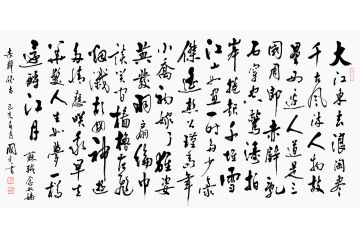 大江東去浪淘盡
千古風流人物故
壘西邊人道是三
國周郎赤壁亂
石穿空驚濤拍
岸捲起千堆雪
江山如畫一時多少豪
傑遙想公瑾當年
小喬初嫁了雄姿
英發羽扇綸巾
談笑間檣櫓灰飛
煙滅故國神遊
多情應笑我早生
華髮人生如夢一樽
還酹江月 蘇軾念奴嬌
赤壁懷古 己亥 書